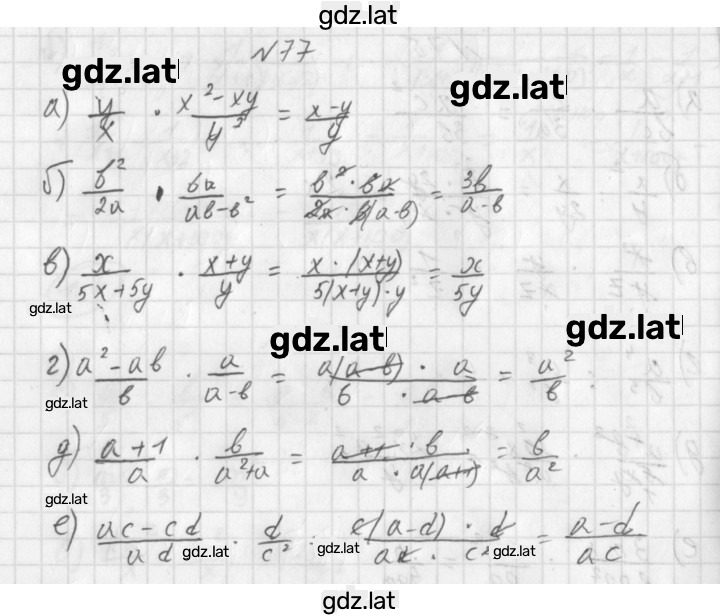 gdz.lat
№77
gdz.lat
gdz.lat
а) y/x · x² - xy/y² = x-y/y
б) b²/2a · 6a/ab-b² = b² · 6a/2a · b(a-b) = 3b/a-b
в) x/5x+5y · x+y/y = x · (x+y)/5(x+y) · y = x/5y
gdz.lat
gdz.lat
gdz.lat
г) a² - ab/b · a/a-b = a(a-b) · a/b · a-b = a²/b
gdz.lat
д) a+1/a · b/a²+a = a+1 · b/a · a(a+1) = b/a²
gdz.lat
е) ac - cd/ad · d/c² : c(a-d) · d/ad · c² = a-d/ac
gdz.lat
gdz.lat
gdz.lat
gdz.lat